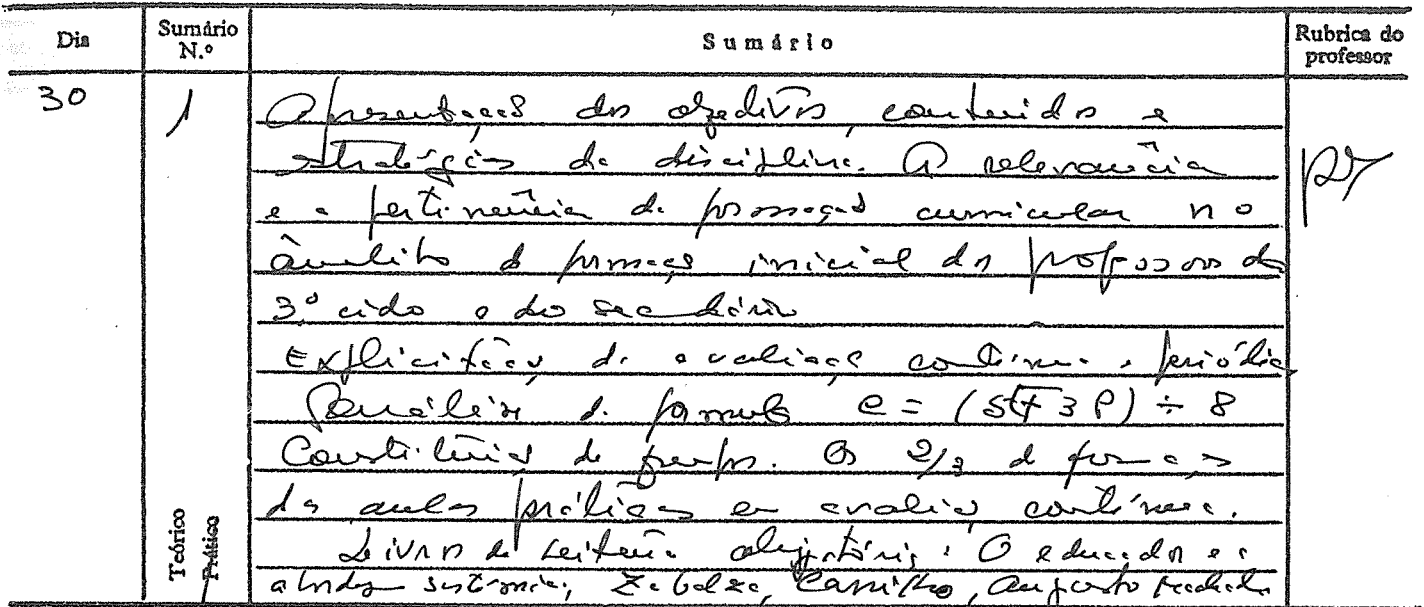 Dia Sumário N.º Sumário Rubrica do professor
30 1 Apresentação dos objectivos, conteúdos e
estratégias da disciplina. A relevância
e a pertinência da formação curricular no
âmbito da formação inicial dos professores do
3º ciclo e do secundário
Explicitação da avaliação contínua e periódica
da fórmula C = (5T+3P) ÷ 8
Constituição de grupos. Os 2/3 de
das aulas práticas em avaliação contínua.
Livros de leitura obrigatória: O educador e a
abordagem sistémica; Zabalza, Carrilho, Augusto Machado
Teórico
Prático